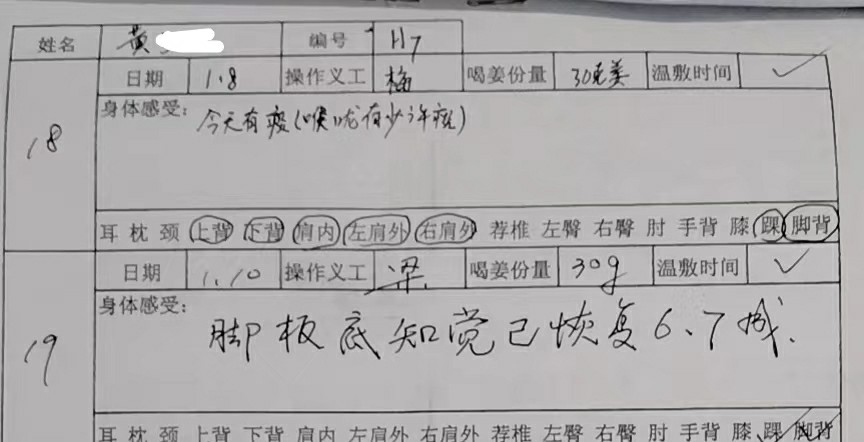 姓名 黄 编号 H7
18 日期 1.8 操作义工 梅 喝姜份量 30克姜 温敷时间 ✓
身体感受: 今天有痰(喉咙有少许痰)
耳 枕 颈 上背 下背 肩内 左肩外 右肩外 荐椎 左臀 右臀 肘 手背 膝 踝 脚背
19 日期 1.10 操作义工 梁 喝姜份量 30g 温敷时间 ✓
身体感受:
脚板底知觉已恢复6.7成.
耳 枕 颈 上背 下背 肩内 左肩外 右肩外 荐椎 左臀 右臀 肘 手背 膝 踝 脚背